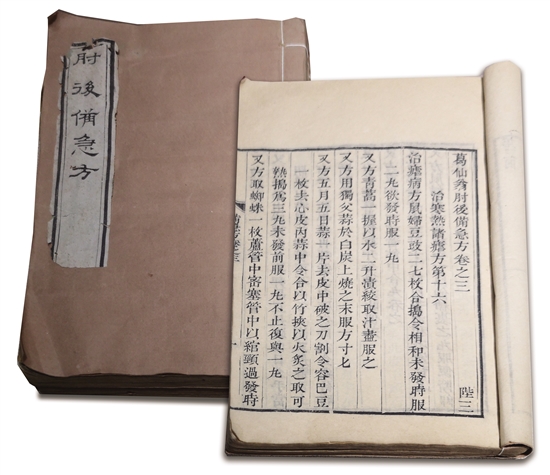 肘後備急方
葛仙翁肘後備急方卷之三
治寒熱諸瘧方第十六
治瘧病方鼠婦豆豉二七枚合搗令相和未發時服
二丸欲發時服一丸
又方青蒿一握以水二升漬絞取汁盡服之
又方用獨父蒜於白炭上燒之末服方寸匕
又方五月五日蒜一片去皮中破之刀割令容巴豆
一枚去心皮內蒜中令合以竹挾以火炙之取可
熱搗爲三丸未發前服一丸不止復與一丸
又方取蜘蛛一枚蘆管中密塞管中以綰頸過發時
陸三